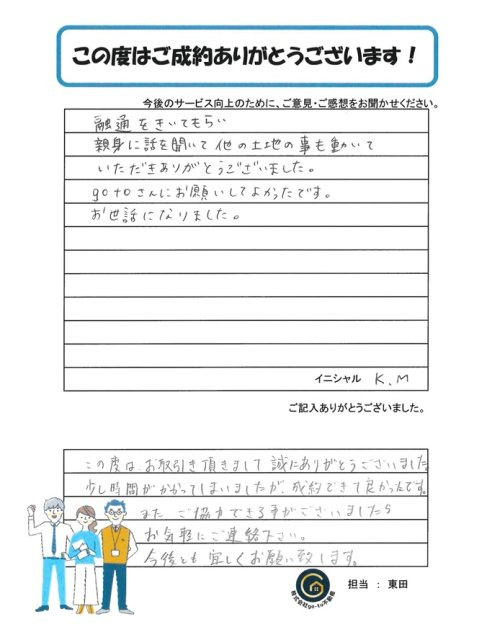 この度はご成約ありがとうございます！
今後のサービス向上のために、ご意見・ご感想をお聞かせください。
融通をきいてもらい
親身に話を聞いて他の土地の事も動いて
いただきありがとうございました。
gotoさんにお願いしてよかったです。
お世話になりました。
イニシャル K.M
ご記入ありがとうございました。
この度はお取引き頂きまして誠にありがとうございました
少し時間がかかってしまいましたが、成約できて良かったです。
また ご協力できる事がございましたら
お気軽にご連絡下さい。
今後とも宜しくお願い致します。
株式会社go-to不動産
担当 ： 東田